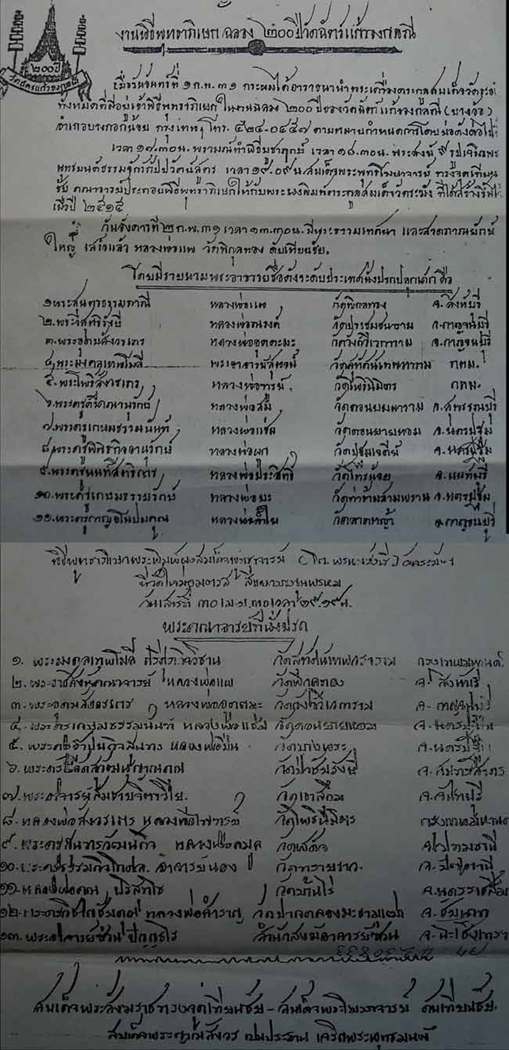 งานพิธีพุทธาภิเษก ฉลอง ๒๐๐ ปี วัดฉัตร์แก้วจงกลณี
๒๐๐ ปี
วัดฉัตรแก้วจงกลณี
เมื่อวันจันทร์ที่ ๑ ก.พ. ๓๑ กระผมได้อาราธนานำพระเครื่องตระกูลสมเด็จวัดระฆัง
ทั้งหมดที่มีอยู่เข้าพิธีพุทธาภิเษกในงานฉลอง ๒๐๐ ปีของวัดฉัตร์แก้วจงกลณี (บางอ้อ)
อำเภอบางกอกน้อย กรุงเทพฯ โทร. ๔๒๔-๐๔๔๗ ตามหมายกำหนดการโดยย่อดังต่อไปนี้
เวลา ๑๗.๓๐น. พราหมณ์ทำพิธีบูชาฤกษ์ เวลา ๑๘.๓๐น. พระสงฆ์ รูปเจริญพระ
พุทธมนต์ธรรมจักรกัปปวัตนสูตร เวลา ๑๙.๐๙น. สมเด็จพระพุฒโฆษาจารย์ ทรงจุดเทียน
ชัย คณาจารย์ประกอบพิธีพุทธาภิเษกให้กับพระผงพิมพ์ตระกูลสมเด็จวัดระฆัง ที่ได้สร้างขึ้นไว้
เมื่อปี ๒๕๑๕
วันอังคารที่ ๒ ก.พ. ๓๑ เวลา ๑๓.๓๐น. มีพระธรรมเทศนา และสวดภาณยักษ์
ใหญ่ เสร็จแล้ว หลวงพ่อแพ วัดพิกุลทอง ดับเทียนชัย.
โดยมีรายนามพระอาจารย์ชื่อดังระดับประเทศนั่งปรกปลุกเสก คือ
๑.พระสุนทรธรรมภาณี หลวงพ่อแพ วัดพิกุลทอง จ.สิงห์บุรี
๒. หลวงพ่อณรงค์ จ.กาญจนบุรี
๓.พระอุดมสังวรเถร หลวงพ่ออุตตะมะ วัดวังก์วิเวการาม จ.กาญจนบุรี
๔.พระมงคลเทพโมลี วัดสุทัศน์เทพวราราม กทม.
๕.พระโพธิสังวรเถร หลวงพ่อฑูรย์ วัดโพธินิมิตร กทม.
๖.พระครู หลวงพ่อสม วัดดอนบุบผาราม จ.สุพรรณบุรี
๗.พระครูเกษมธรรมนันท์ หลวงพ่อแช่ม วัดดอนยายหอม จ.นครปฐม
๘.พระครู หลวงพ่อ วัดปฐมเจดีย์ จ.นครปฐม
๙.พระครูนนทสิทธิการ หลวงพ่อประสิทธิ์ วัดไทรน้อย จ.นนทบุรี
๑๐.พระครูเกษมธรรมรักษ์ หลวงพ่อ วัดท่าข้ามสามพราน จ.นครปฐม
๑๑.พระครูกาญจโนปมคุณ หลวงพ่อลำไย วัดลาดหญ้า จ.กาญจนบุรี
พิธีพุทธาภิเษกพระพิมพ์ วัดระฆังฯ
ที่วัดใหม่อมตรส
วันเสาร์ที่ ๓๐ เม.ย. ๓๐ เวลา ๑๙.๑๙น.
พระคณาจารย์ที่นั่งปรก
๑. พระมงคลเทพโมลี วัดสุทัศน์เทพวราราม กรุงเทพมหานคร
๒. พระ หลวงพ่อแพ วัดพิกุลทอง จ.สิงห์บุรี
๓. พระอุดมสังวรเถร หลวงพ่ออุตตะมะ วัดวังก์วิเวการาม จ.กาญจนบุรี
๔. พระครูเกษมธรรมนันท์ หลวงพ่อแช่ม วัดดอนยายหอม จ.นครปฐม
๕. พระครูฐาปนกิจสุนทร หลวงพ่อเปิ่น วัดบางพระ จ.นครปฐม
๖. พระครู วัดป่าชัยรังสี จ.สมุทรสาคร
๗. พระอาจารย์สมชายฐิตวิริโย วัดเขาสุกิม จ.จันทบุรี
๘. หลวงพ่อสังวรเถร หลวงพ่อไพฑูรย์ วัดโพธินิมิตร กรุงเทพมหานคร
๙. พระครูสุนทรวัฒนกิจ วัดเสด็จ จ.ปทุมธานี
๑๐. อาจารย์นอง วัดทรายขาว จ.ปัตตานี
๑๑. หลวงพ่อคูณ ปริสุทโธ วัดบ้านไร่ จ.นครราชสีมา
๑๒. หลวงพ่อสำราญ วัดปากคลองมะขามเฒ่า จ.ชัยนาท
๑๓. สำนักสงฆ์ จ.ฉะเชิงเทรา
สมเด็จพระสังฆราชทรงจุดเทียนชัย - ดับเทียนชัย
สมเด็จพระญาณสังวร เป็นประธาน เจริญพระพุทธมนต์